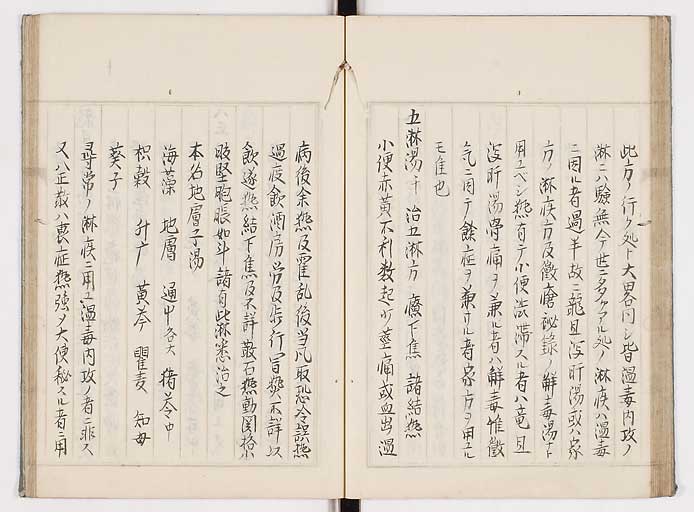 此方ノ行ク処ト大畧同シ皆温毒内攻ノ
淋ニハ験無今世ニ多クアル処ノ淋疾ハ温毒
ニ因ル者過半故ニ龍且瀉肝湯或ハ家
方ノ淋疾方及黴瘡秘錄ノ解毒湯ナト
用ユヘシ熱有テ小便渋滞スル者ハ竜且
瀉肝湯骨痛ヲ兼ル者ハ解毒惟黴
気ニ因テ餘症ヲ兼サル者家方ヲ用ユル
モ佳也
五淋湯 治五淋方 療下焦 諸結熱
小便赤黄不利数起 少 莖痛或血出温
病後余熱及霍乱後当風取 冷 熱
過度飲酒房労及 行冒熱 冷
飲逐熱結下焦及 石熱動関格
腹堅胞脹如斗諸有此淋悉治之
本名地膚子湯
海藻 地膚 通中各大 猪苓中
枳殻 升广 黄芩 瞿麦 知母
葵子
尋常ノ淋疾ニ用ユ温毒内攻ノ者ニ非ス
又八正散ハ裏症熱強ク大便秘スル者ニ用